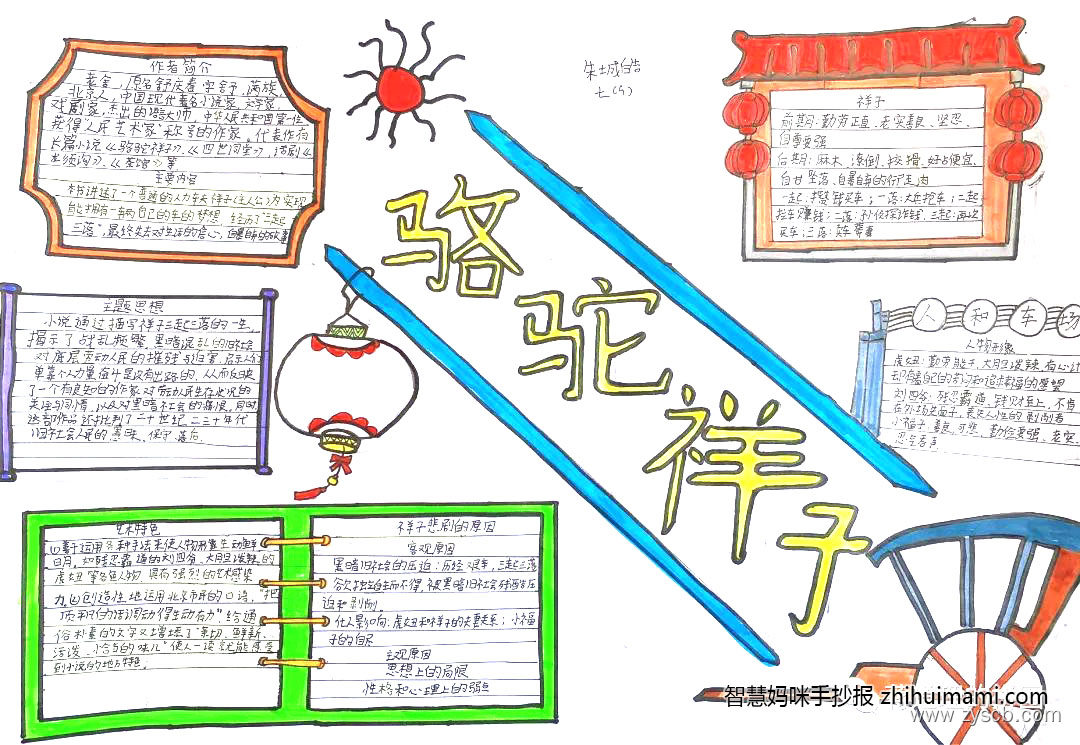 作者简介
老舍,原名舒庆春,字舍予,满族,
北京人,中国现代著名小说家、文学家、
戏剧家、杰出的语言大师,中华人民共和国第一位
获得"人民艺术家"称号的作家。代表作有
长篇小说《骆驼祥子》、《四世同堂》,话剧《
龙须沟》、《茶馆》等
主要内容
本书讲述了一个普通的人力车夫祥子(主人公)为实现
自己拥有一辆自己的车的梦想 经历了"三起
三落",最终失去对生活的信心,自暴自弃的故事
朱士成皓
七(9)
祥子
前期:勤劳正直、老实善良、坚忍、
自尊要强
后期:麻木、潦倒、狡猾、好占便宜、
自甘堕落、自暴自弃的行尸走肉
一起:攒钱买车;一落:大兵抢车;二起:
拉车赚钱;二落:孙侦探诈钱、三起:再次
买车;三落:卖车葬妻
骆驼祥子
主题思想
小说通过描写祥子三起三落的一生,
揭示了战乱频繁、黑暗混乱的旧社会
对底层劳动人民的摧残与迫害,启示人们
单靠个人力量奋斗是没有出路的,从而反映
了一个有良知的作家对劳动人民生存状况的
关注与同情,以及对黑暗社会的痛恨,同时
这部作品还批判了二十世纪二三十年代
旧社会人民的愚昧、保守、落后
人和车场
人物形象
虎妞:勤劳能干、大胆泼辣、有心计
刘四爷:残忍霸道、钱财至上,不肯
小福子:善良、可悲、勤俭要强、老实、
忍辱
艺术特色
(1)善于运用各种手法来使人物形象生动鲜
明,如残忍霸道的刘四爷、大胆泼辣的
虎妞等角色人物,具有强烈的艺术感染
力。(2)创造性地运用北京市民的口语,"把
顶平凡的话调动得生动有力",给通
俗朴素的文字又增添了"亲切、新鲜、
活泼、恰当的味儿"使人一读就能感受
到小说的地方特色。
祥子悲剧的原因
客观原因
黑暗旧社会的压迫:历经艰辛,三起三落
欲独立自主而不得,被黑暗旧社会残酷压
迫和剥削。
他人影响:虎妞和祥子的夫妻关系;小福
子的自尽
主观原因
思想上的局限
性格和心理上的弱点
智慧妈咪手抄报 zhihuimami.com
www.zyscb.com